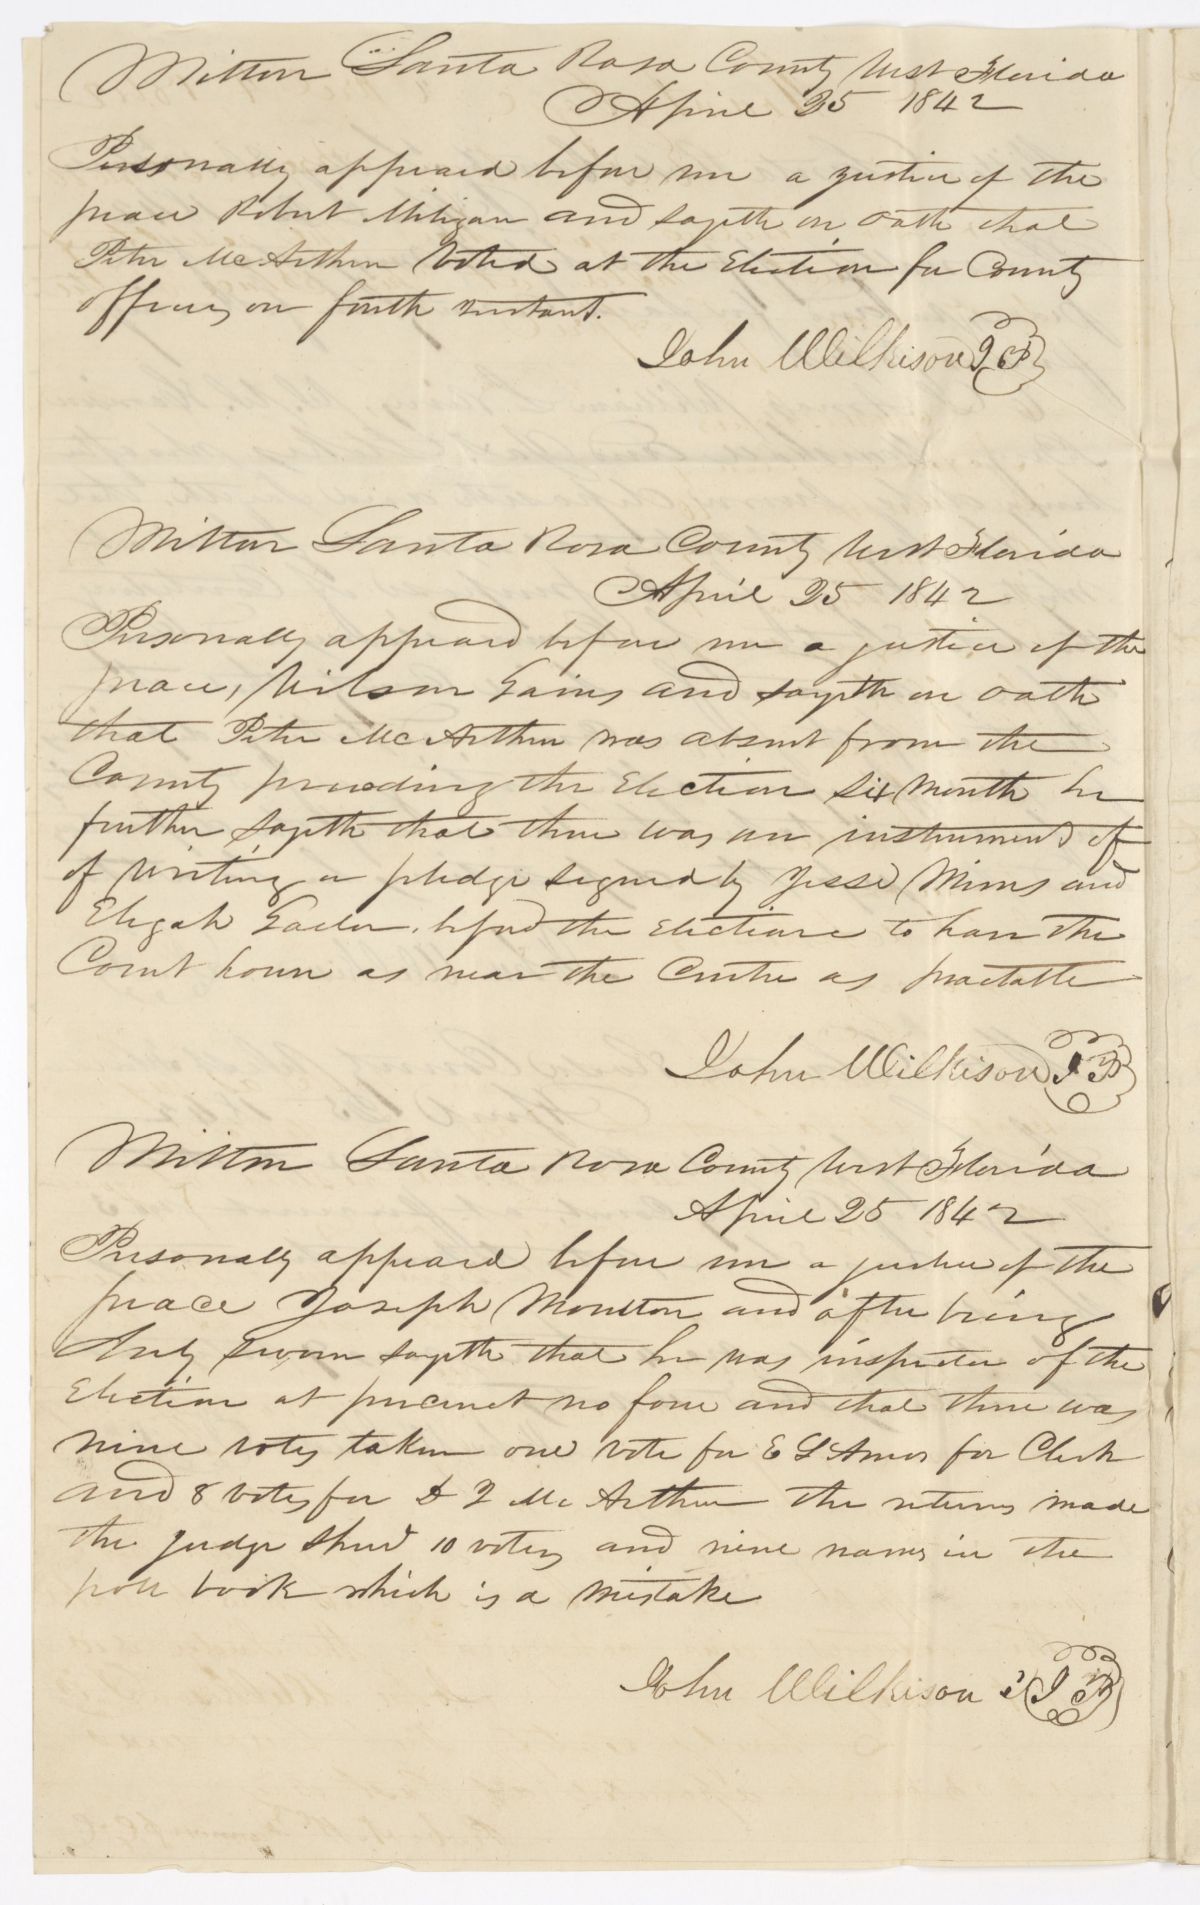 Milton Santa Rosa County West Florida
April 25 1842
Personally appeared before me a justice of the
peace Robert Miligan and sayeth on oath that
Peter McArthur Voted at the Election for County
officers on fourth instant.
John Wilkison J P
Milton Santa Rosa County West Florida
April 25 1842
Personally appeard before me a justice of the
peace, Wilson Gains and sayeth on oath
that Peter McArthur was absent from the
County preceding the Election six Month he
further sayeth that there was an instrument of
of writing or pledge signed by Jesse Mims and
Elijah before the Elections to have the
Court house as near the Centre as
John Wilkison J P
Milton Santa Rosa County West Florida
April 25 1842
Personally appeard before me a justice of the
peace Joseph Moulton and after being
duly sworn sayeth that he was inspecter of the
Election at precinct no four and that there was
nine votes taken one vote for E L Amos for Clerk
and 8 votes for McArthur the returns made
the Judge 10 votes and nine names in the
poll book which is a mistake
John Wilkison J P